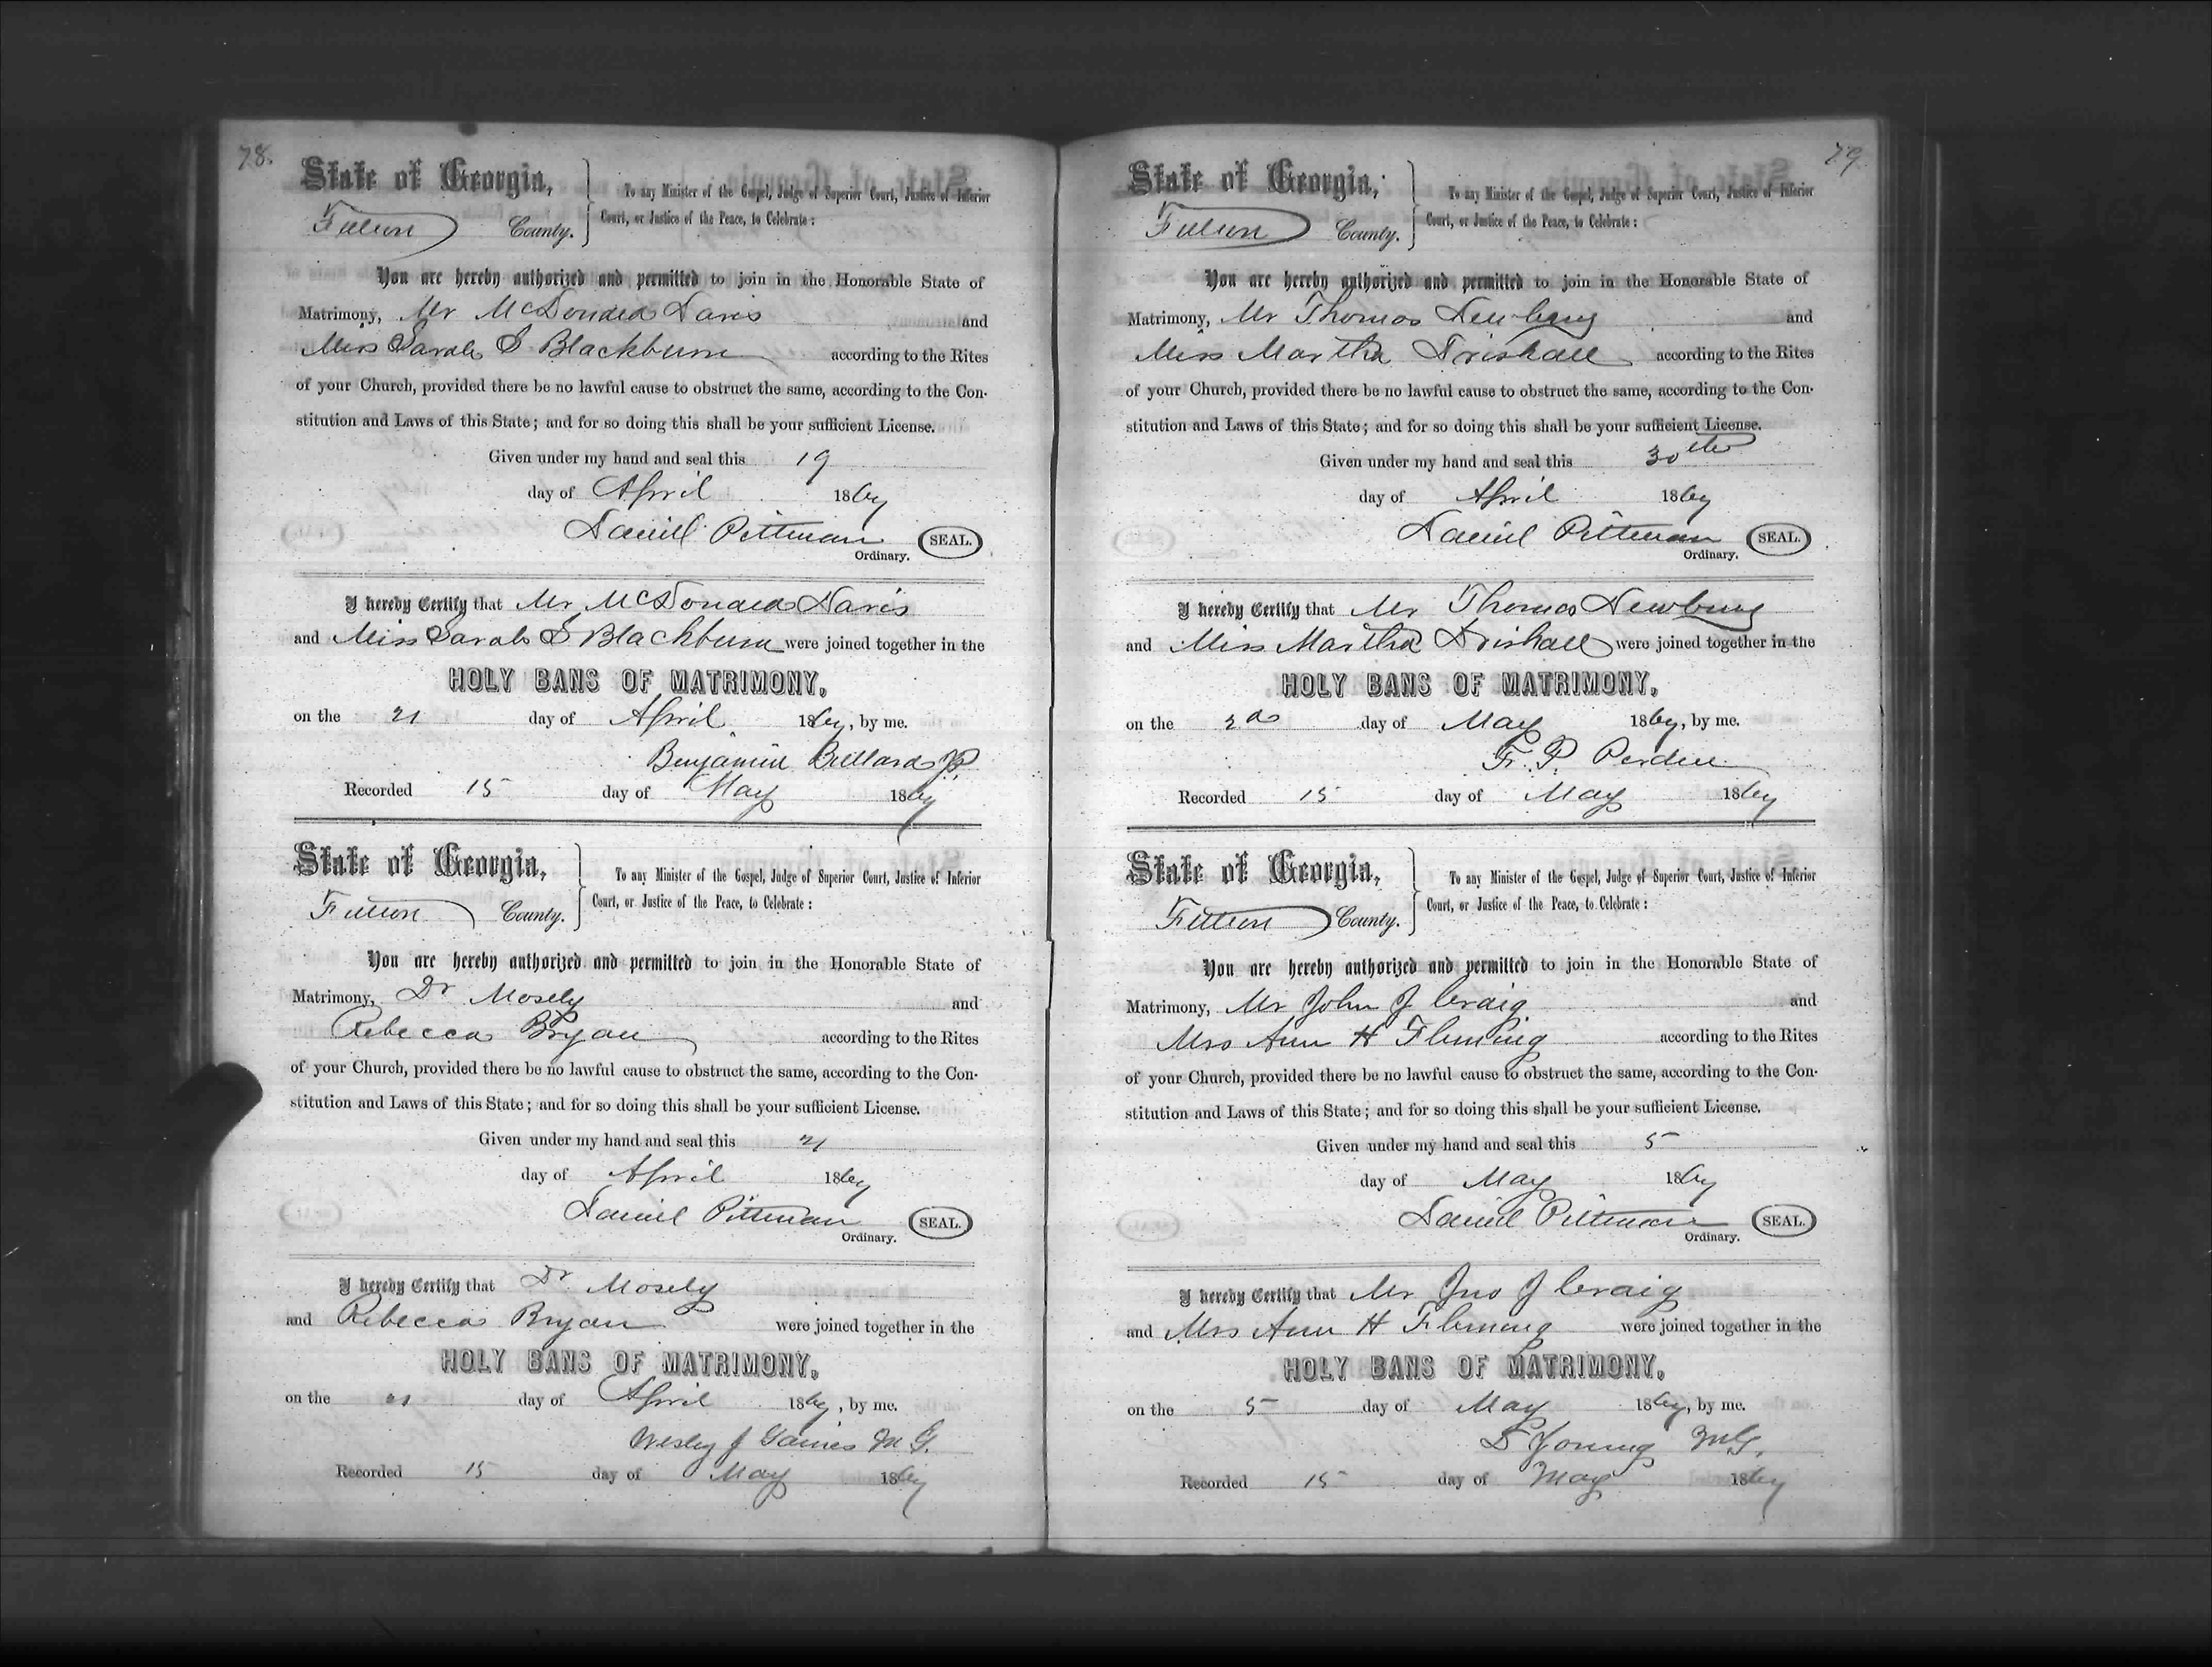 78.
State of Georgia,
Fulton County.
To any Minister of the Gospel, Judge of Superior Court, Justice of Inferior
Court, or Justice of the Peace, to Celebrate:
You are hereby authorized and permitted to join in the Honorable State of
Matrimony, Mr McDonald Davis and
Miss Sarah S Blackburn according to the Rites
of your Church, provided there be no lawful cause to obstruct the same, according to the Con-
stitution and Laws of this State; and for so doing this shall be your sufficient License.
Given under my hand and seal this 19
day of April 1867
Daniel Pittman SEAL.
Ordinary.
I hereby Certify that Mr McDonald Davis
and Miss Sarah S Blackburn were joined together in the
HOLY BANS OF MATRIMONY,
on the 21 day of April 1867, by me.
Benjamin Bullard JP
Recorded 15 day of May 1867
State of Georgia,
Fulton County.
To any Minister of the Gospel, Judge of Superior Court, Justice of Inferior
Court, or Justice of the Peace, to Celebrate:
You are hereby authorized and permitted to join in the Honorable State of
Matrimony, Dr Mosely and
Rebecca Bryan according to the Rites
of your Church, provided there be no lawful cause to obstruct the same, according to the Con-
stitution and Laws of this State; and for so doing this shall be your sufficient License.
Given under my hand and seal this 21
day of April 1867
Daniel Pittman SEAL.
Ordinary.
I hereby Certify that Dr Mosely
and Rebecca Bryan were joined together in the
HOLY BANS OF MATRIMONY,
on the 21 day of April 1867, by me.
Wesley J Gaines M G.
Recorded 15 day of May 1867
79
State of Georgia,
Fulton County.
To any Minister of the Gospel, Judge of Superior Court, Justice of Inferior
Court, or Justice of the Peace, to Celebrate:
You are hereby authorized and permitted to join in the Honorable State of
Matrimony, Mr Thomas Newbury and
Miss Martha Driskall according to the Rites
of your Church, provided there be no lawful cause to obstruct the same, according to the Con-
stitution and Laws of this State; and for so doing this shall be your sufficient License.
Given under my hand and seal this 30th
day of April 1867
Daniel Pittman SEAL.
Ordinary.
I hereby Certify that Mr Thomas Newbury
and Miss Martha Driskall were joined together in the
HOLY BANS OF MATRIMONY,
on the 2d day of May 1867, by me.
F. P. Perdue
Recorded 15 day of May 1867
State of Georgia,
Fulton County.
To any Minister of the Gospel, Judge of Superior Court, Justice of Inferior
Court, or Justice of the Peace, to Celebrate:
You are hereby authorized and permitted to join in the Honorable State of
Matrimony, Mr John J Craig and
Mrs Ann H Fleming according to the Rites
of your Church, provided there be no lawful cause to obstruct the same, according to the Con-
stitution and Laws of this State; and for so doing this shall be your sufficient License.
Given under my hand and seal this 5
day of May 1867
Daniel Pittman SEAL.
Ordinary.
I hereby Certify that Mr Jno J Craig
and Mrs Ann H Fleming were joined together in the
HOLY BANS OF MATRIMONY,
on the 5 day of May 1867, by me.
D Young M G.
Recorded 15 day of May 1867